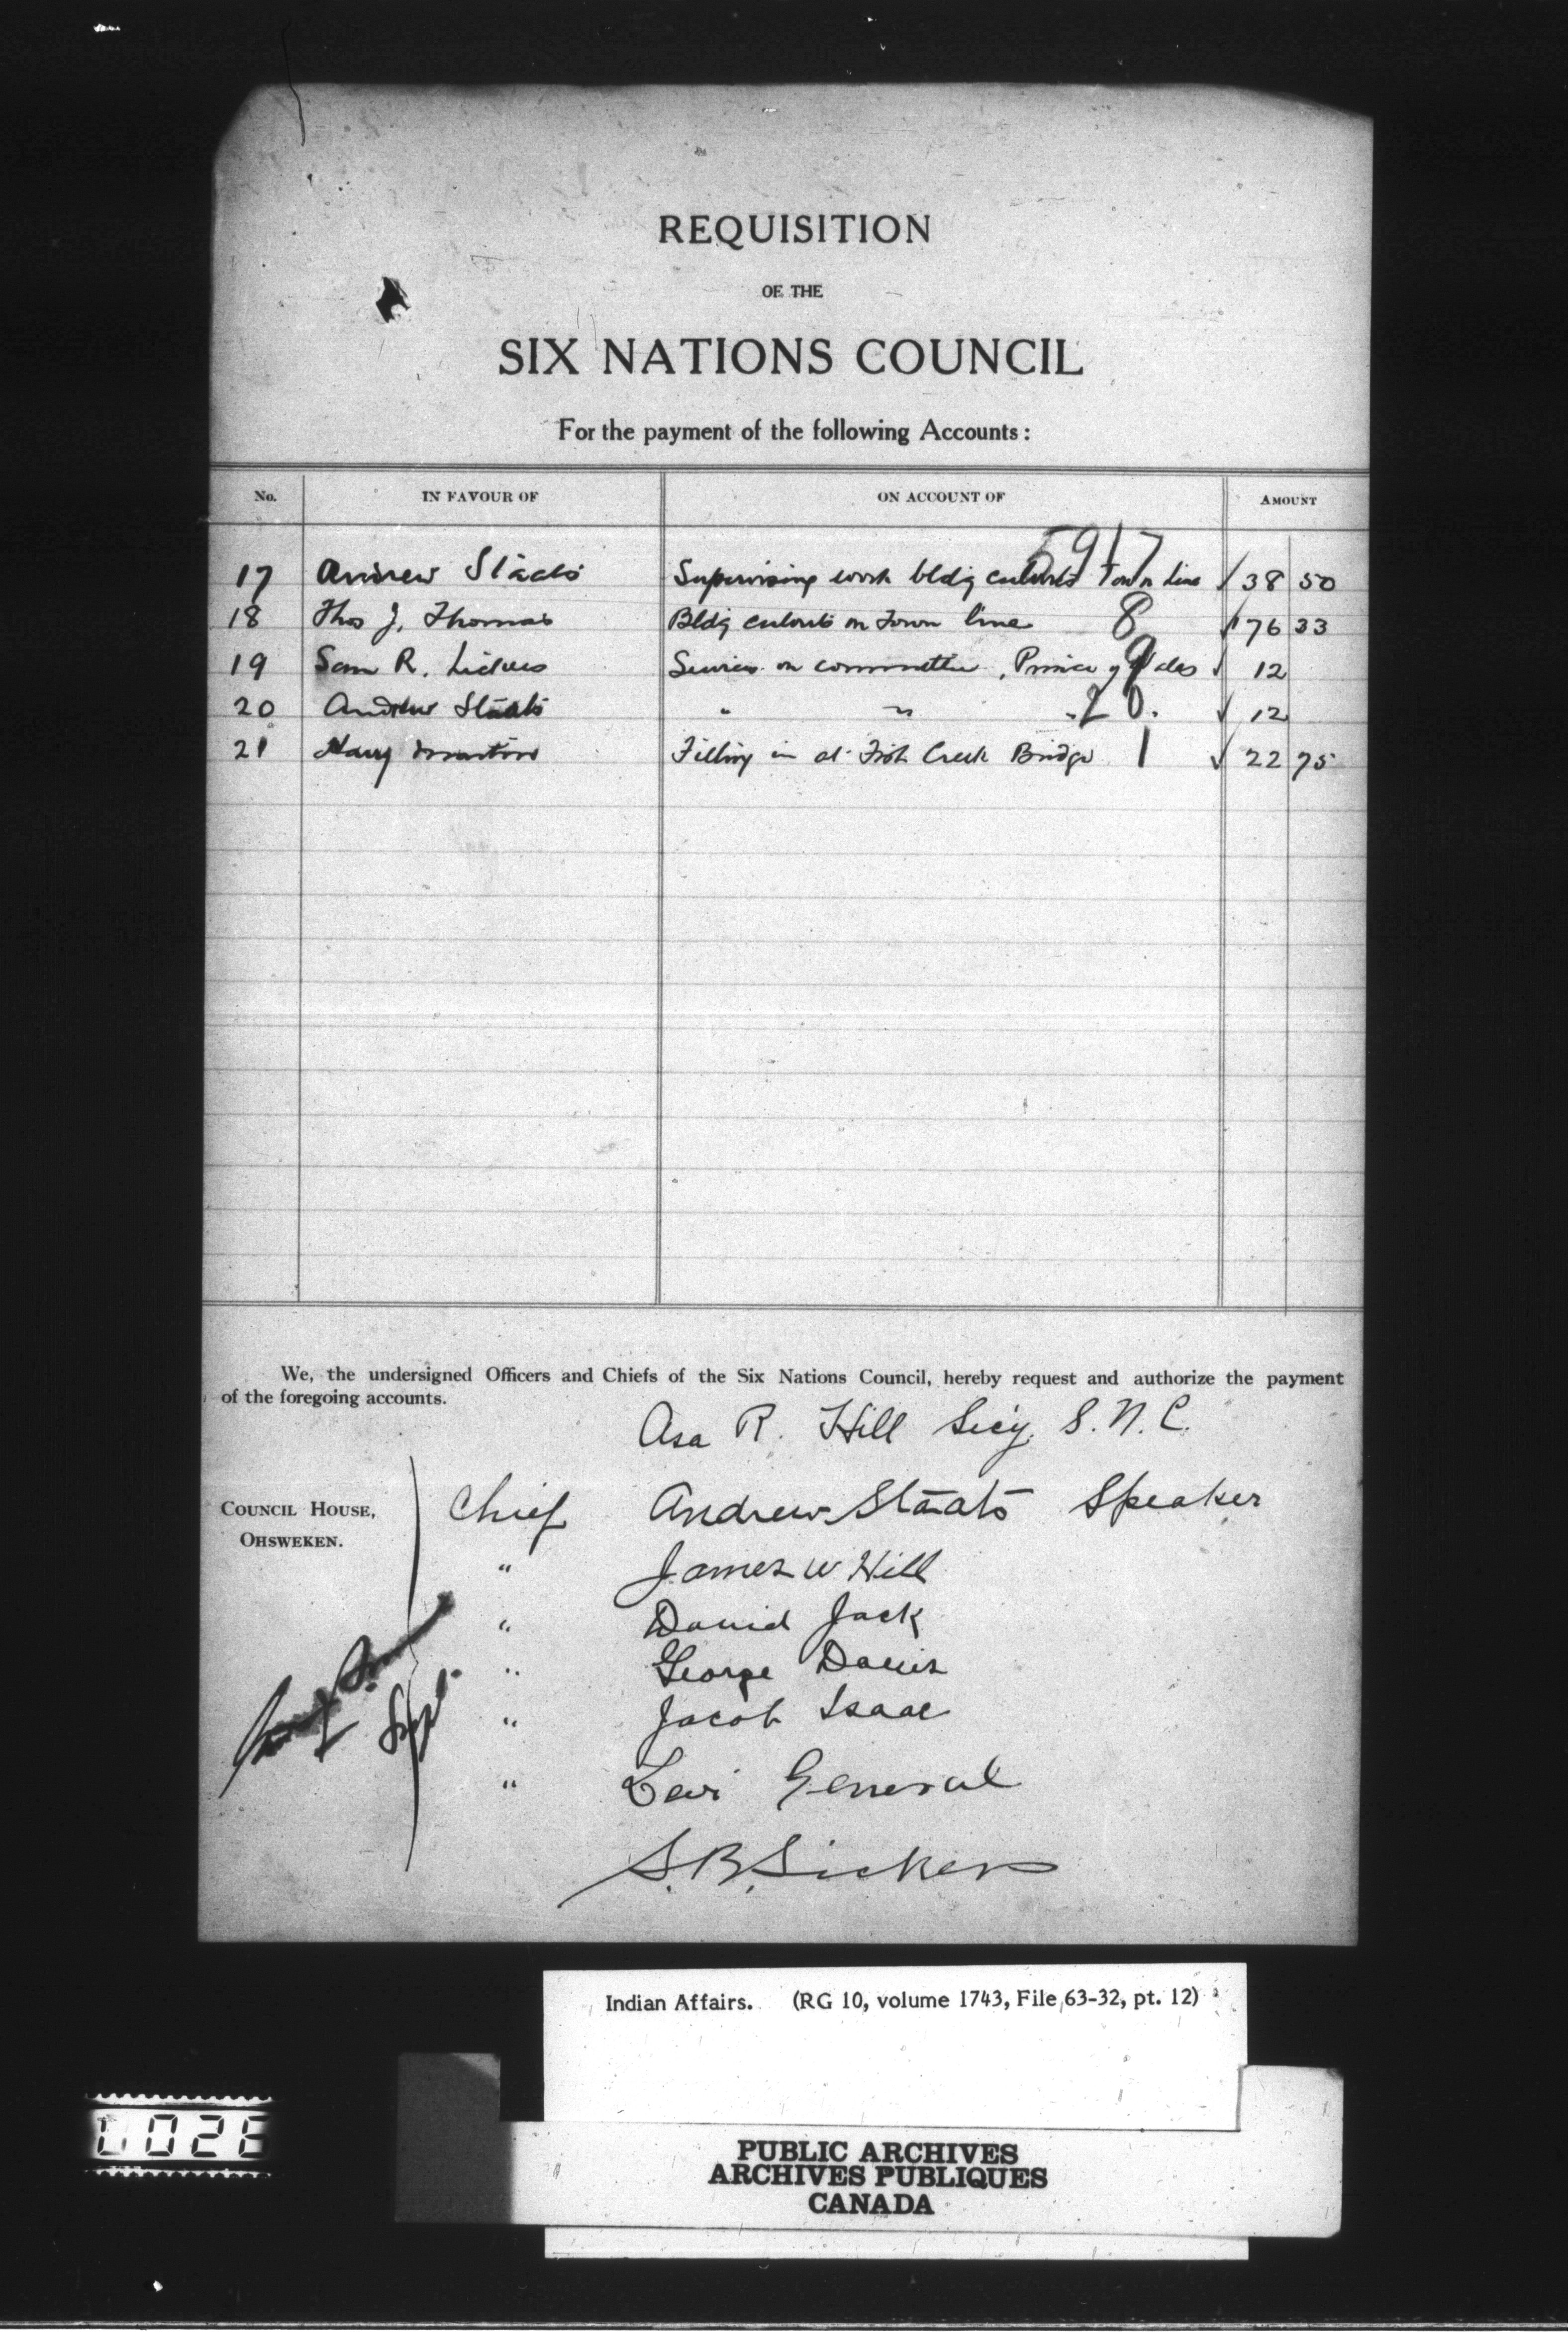 REQUISITION
OF THE
SIX NATIONS COUNCIL
For the payment of the following Accounts:
No. IN FAVOUR OF ON ACCOUNT OF AMOUNT
5917
17 Andrew Staats Supervising work bldg culverts Town line ✓ 38 50
18 Thos J. Thomas Bldg culverts on Town line 8 ✓ 76 33
19 Sam R. Lickers Services on committee, Prince of Wales 9 ✓ 12
20 Andrew Staats " " " 20. ✓ 12
21 Harry Martin Filling in at Fish Creek Bridge 1 ✓ 22 75
We, the undersigned Officers and Chiefs of the Six Nations Council, hereby request and authorize the payment
of the foregoing accounts.
Asa R. Hill Secy. S. N. C.
COUNCIL HOUSE,
OHSWEKEN.
Chief Andrew Staats Speaker
" James W Hill
" David Jack
" George Davis
" Jacob Isaac
" Levi General
Supt.
S. B. Lickers
Indian Affairs. (RG 10, volume 1743, File 63-32, pt. 12)
PUBLIC ARCHIVES
ARCHIVES PUBLIQUES
CANADA